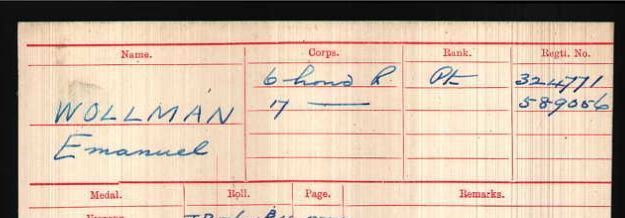 Name. Corps. Rank. Regtl. No.
6 Lond R. Pte 324771
WOLLMAN 17 —— 589056
Emanuel
Medal. Roll. Page. Remarks.